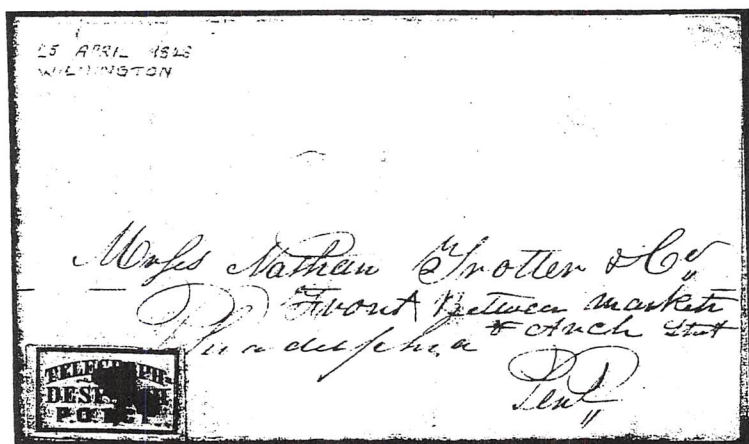 25 APRIL 1828
WILMINGTON
Messrs Nathan Trotter & Co
Front Between Market
& Arch Street
Philadelphia
TELEGRAPH
DEST
P.O.